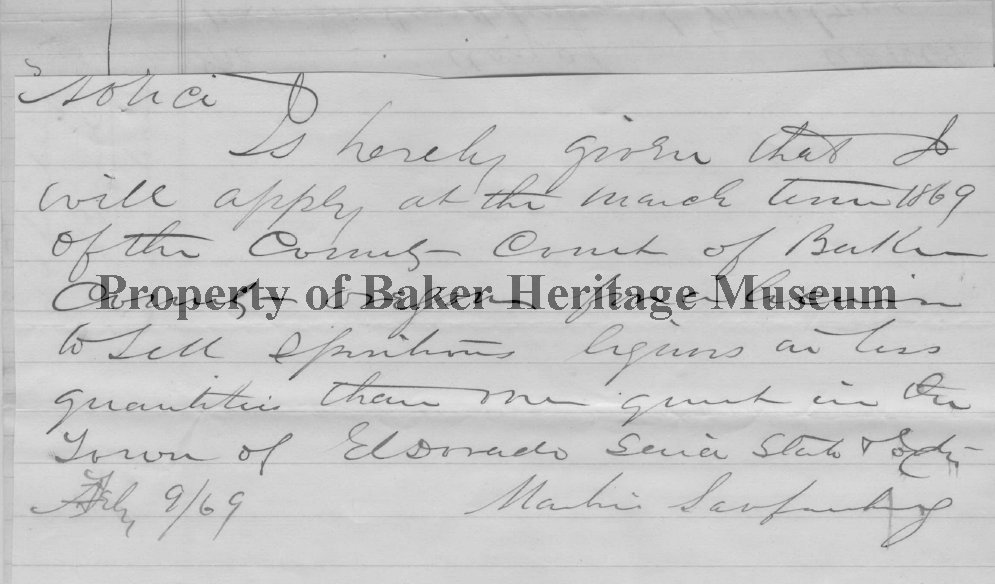 Notice
Is hereby given that I
will apply at the march term 1869
of the County Court of Baker
County Oregon for a license
Property of Baker Heritage Museum
to Sell Spiritous liquors in less
quantities than one quart in the
Town of ElDorado Said State &
Feby 9/69 Martin